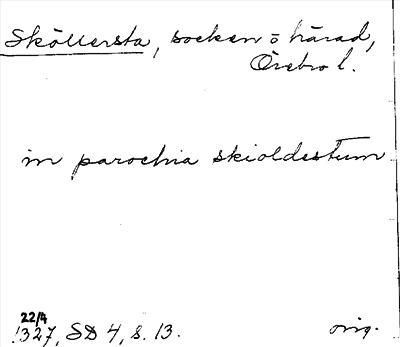 Sköllersta, socken o härad,
Örebro l.
in parochia skioldestum
22/4
1327, SD 4, s. 13.
orig.